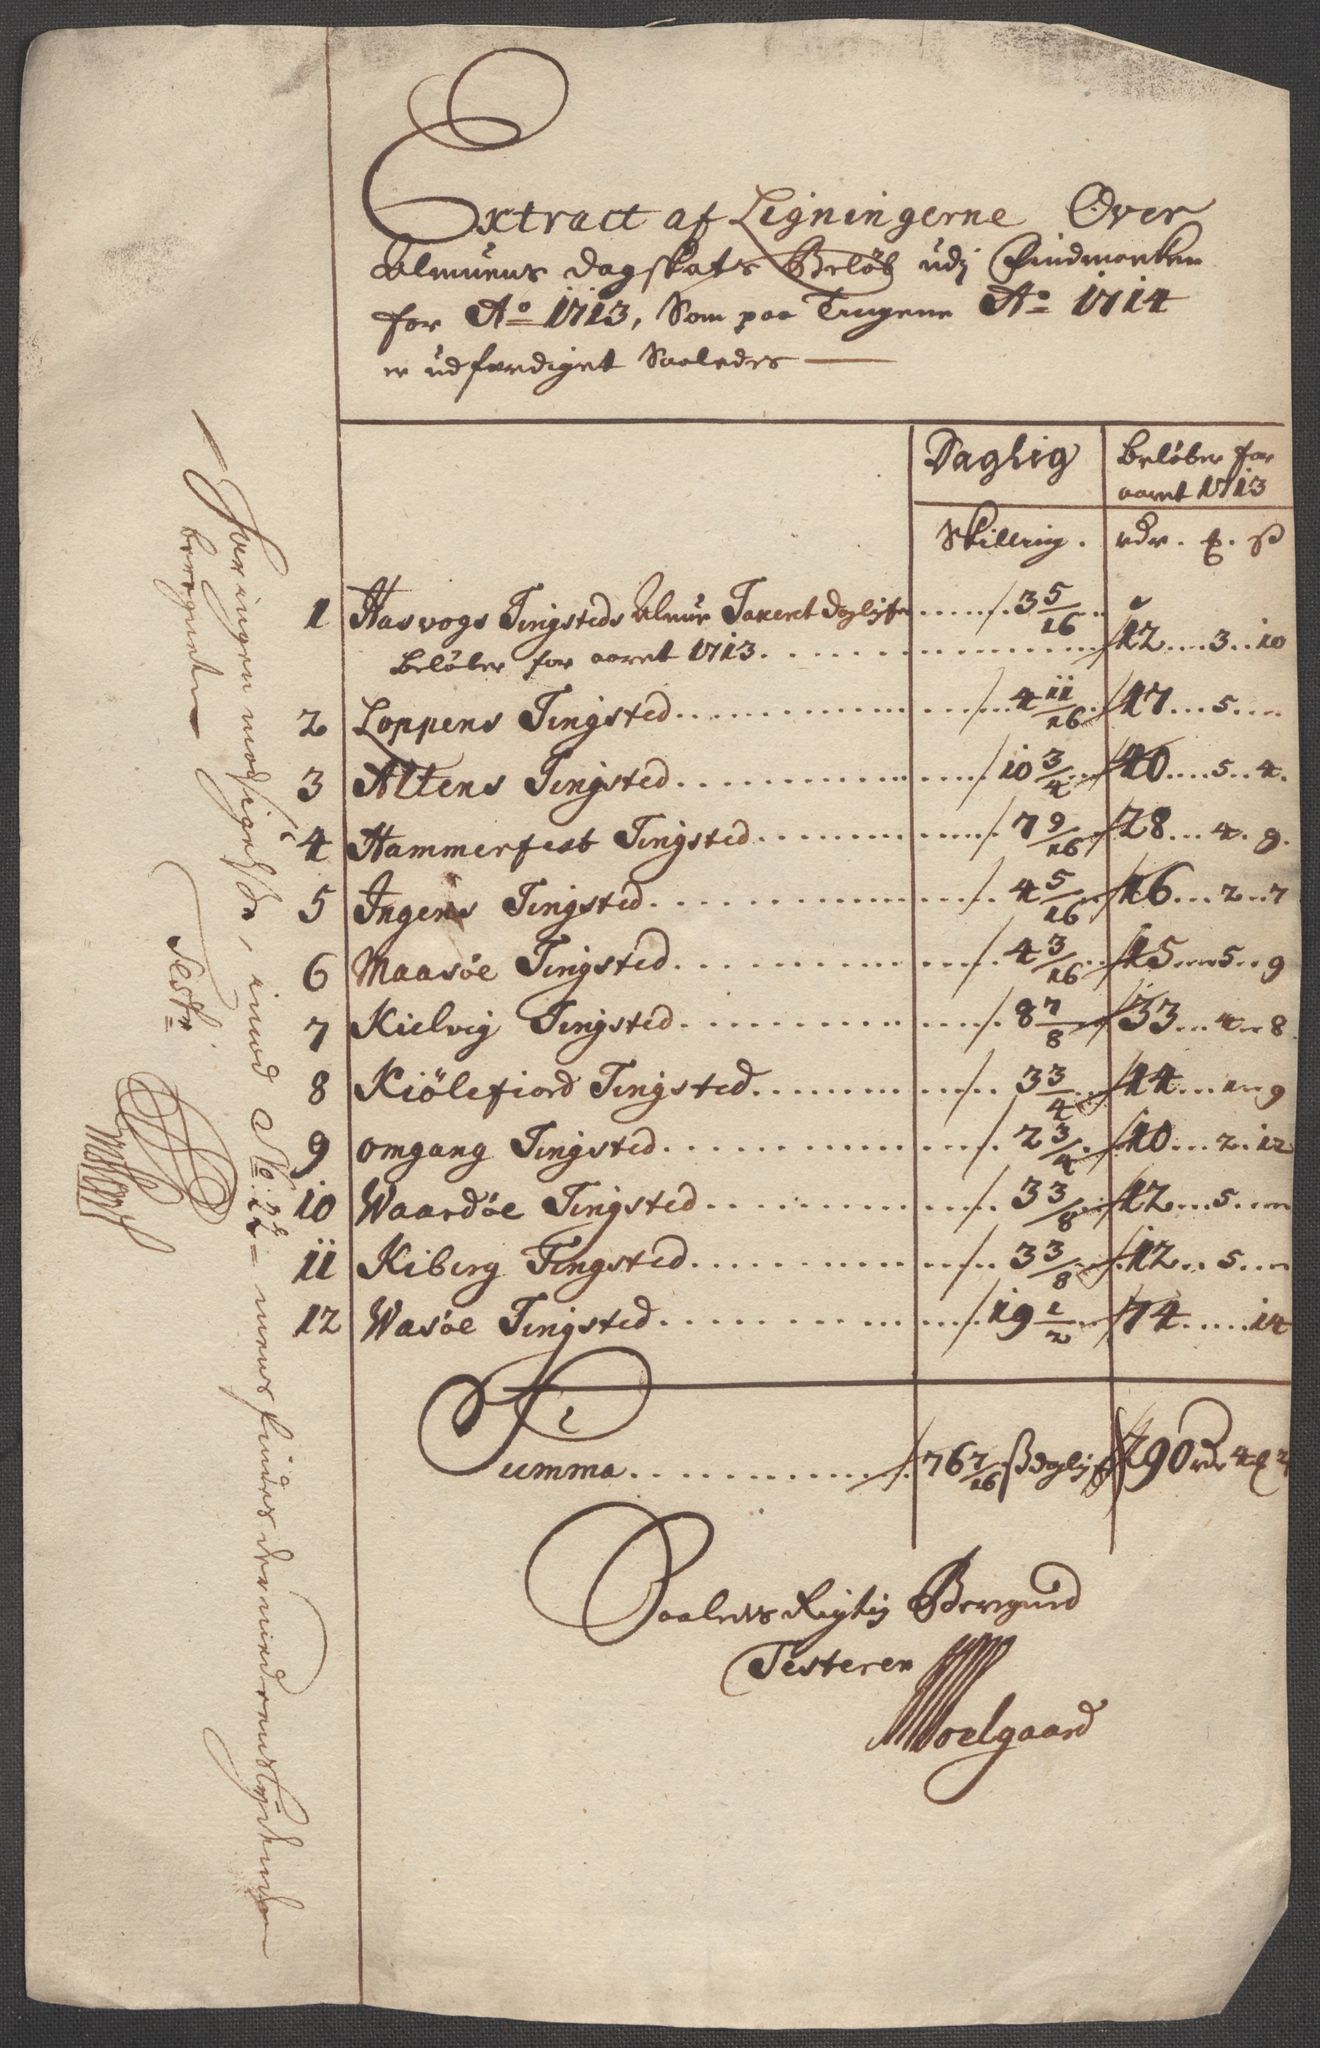 Extract af Ligningerne Over
Almuens dagskats Beløb udj Findmarken
for Ao 1713, Som paa Tingene Ao 1714
er udfærdiget Saaledes
Daglig
Beløber for
aaret 1713
Skilling. rdr. ß
1 Hasvogs Tingsteds Almue Taxeret daglig 3 5/16
Beløber for aaret 1713. 12 3 10
2 Loppens Tingsted 4 11/16 17 5
3 Altens Tingsted 10 3/4 40 5 4
4 Hammerfest Tingsted 7 9/16 28 4 9
5 Ingens Tingsted 4 5/16 16 2 7
6 Maasøe Tingsted 4 3/16 15 5 9
7 Kielvig Tingsted 8 7/8 33 4 8
8 Kiölefiord Tingsted 3 3/4 14 1 9
9 omgang Tingsted 2 3/4 10 2 12
10 Waardöe Tingsted 3 3/8 12 5
11 Kiberg Tingsted 3 3/8 12 5
12 Wasöe Tingsted 19 1/2 74 14
Summa 76 7/16 ß daglig 290 rdr 4
Saaledes Rigtig Beregned
Testerer
Noelgaard
har ingen rigtighed, imod No: 22 = mens findes
beregnet
Test